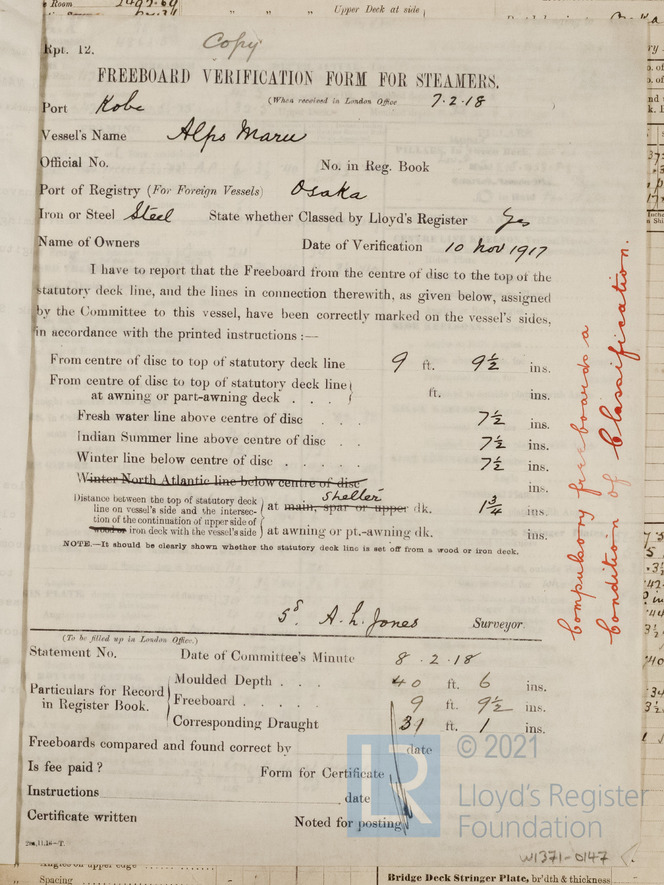 Room 1492.64
" " " Upper Deck at side
Copy
Rpt. 12.
FREEBOARD VERIFICATION FORM FOR STEAMERS.
Port Kobe (When received in London Office 7.2.18
Vessel's Name Alps Maru
Official No. No. in Reg. Book
Port of Registry (For Foreign Vessels) Osaka
Iron or Steel Steel State whether Classed by Lloyd's Register Yes
Name of Owners Date of Verification 10 Nov 1917
I have to report that the Freeboard from the centre of disc to the top of the
statutory deck line, and the lines in connection therewith, as given below, assigned
by the Committee to this vessel, have been correctly marked on the vessel's sides,
in accordance with the printed instructions :—
From centre of disc to top of statutory deck line 9 ft. 9½ ins.
From centre of disc to top of statutory deck line
at awning or part-awning deck . . . ft. ins.
Fresh water line above centre of disc . . . 7½ ins.
Indian Summer line above centre of disc . . 7½ ins.
Winter line below centre of disc . . . . . 7½ ins.
Winter North Atlantic line below centre of disc ins.
Distance between the top of statutory deck
line on vessel's side and the intersec-
tion of the continuation of upper side of
wood or iron deck with the vessel's side
shelter
at main, spar or upper dk. 1¾ ins.
at awning or pt.-awning dk. ins.
NOTE.—It should be clearly shown whether the statutory deck line is set off from a wood or iron deck.
Compulsory freeboards a
Condition of Classification.
Sd. A. L. Jones Surveyor.
(To be filled up in London Office.)
Statement No. Date of Committee's Minute 8.2.18
Particulars for Record
in Register Book.
Moulded Depth . . . 40 ft. 6 ins.
Freeboard . . . . . 9 ft. 9½ ins.
Corresponding Draught 31 ft. 1 ins.
Freeboards compared and found correct by date
Is fee paid ? Form for Certificate
Instructions date
Certificate written Noted for posting
2m,11,16—T.
LR © 2021
Lloyd's Register
Foundation
W1371-0147
Angles on upper edge
Spacing
Bridge Deck Stringer Plate, br'dth & thickness